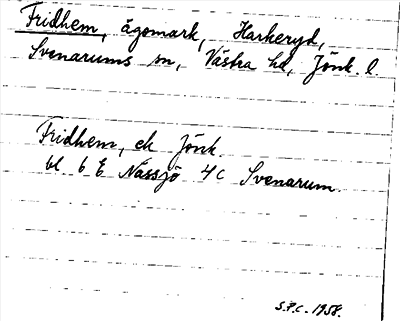 Fridhem, ägomark, Harkeryd,
Svenarums sn, Västra hd, Jönk. l.
Fridhem, ek Jönk.
bl 6 E Nässjö 4c Svenarum.
S.P.C. 1958.